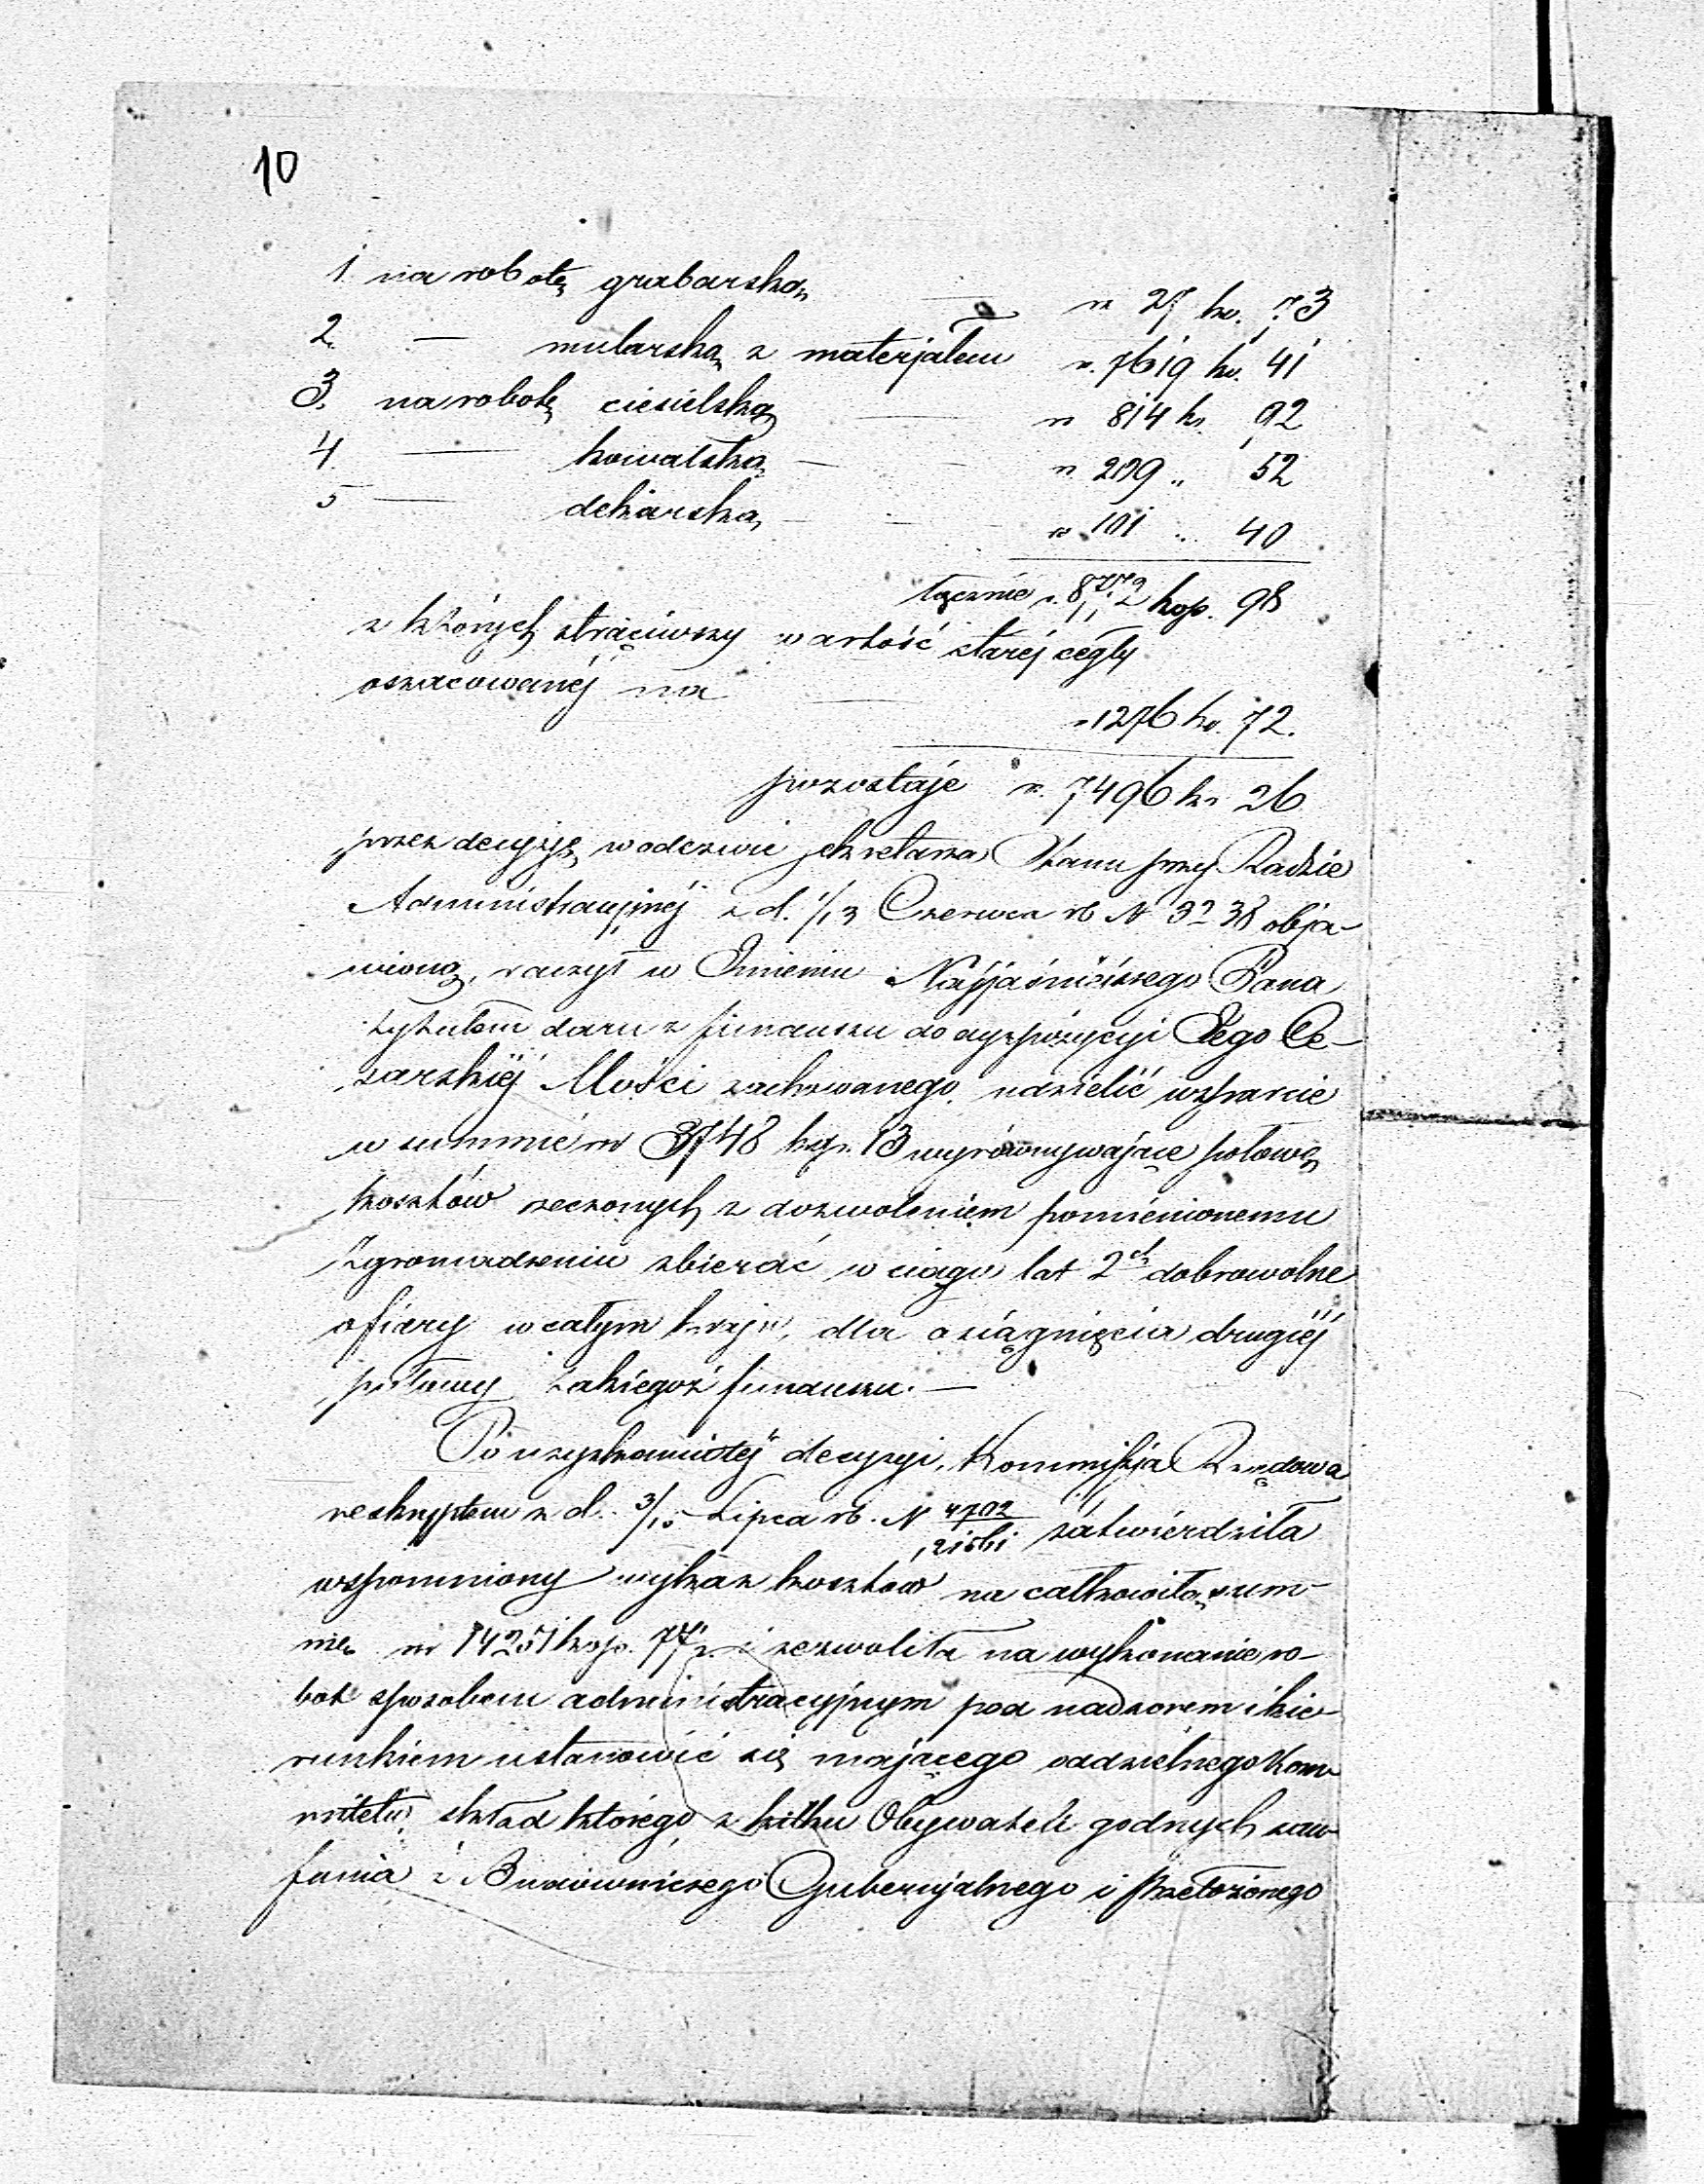 10
1. na robotę grabarską — rs 27 ko. 73
2. — mularską z materjałem rs. 7619 ko. 41
3. na robotę ciesielską — rs 814 ko. 92
4. — kowalską — rs. 209 „ 52
5 — dekarską — rs. 101 „ 40
łącznie rs. 8772 kop. 98
z których strąciwszy wartość staréj cegły
oszacowanéj na —
rs 1276 ko. 72.
pozostaje rs. 7496 ko. 26
przez decyzję w odezwie Sekretarza Stanu przy Radzie
Administracyjnéj z d. 1/13 Czerwca rb N 38 obja-
wioną, raczył w Imieniu Najjaśniéjszego Pana
tytułem daru z funduszu do dyspozycyi Jego Ce-
sarskiéj Mości zachowanego udzielić wsparcie
w summie rs 3748 kop. 13 wyrównywające połowę
kosztów rzeczonych z dozwoleniem pomienionemu
Zgromadzeniu zbierać w ciągu lat 2ch dobrowolne
ofiary w całym kraju, dla osiągnięcia drugiéj
połowy takiegoż funduszu. —
Po uzyskaniu téj decyzyi, Kommissja Rządowa
reskryptem z d. 3/15 Lipca rb. N 4702 zatwierdziła
wspomniony wykaz kosztów na całkowitą sum-
mę rs 14251 kop. 77½ i zezwoliła na wykonanie ro-
bót sposobem administracyjnym pod nadzorem i kie-
runkiem ustanowić się mającego oddzielnego Kom-
mitetu, skład którego z kilku Obywateli godnych zau-
fania i Budowniczego Gubernjalnego i Przełożonego